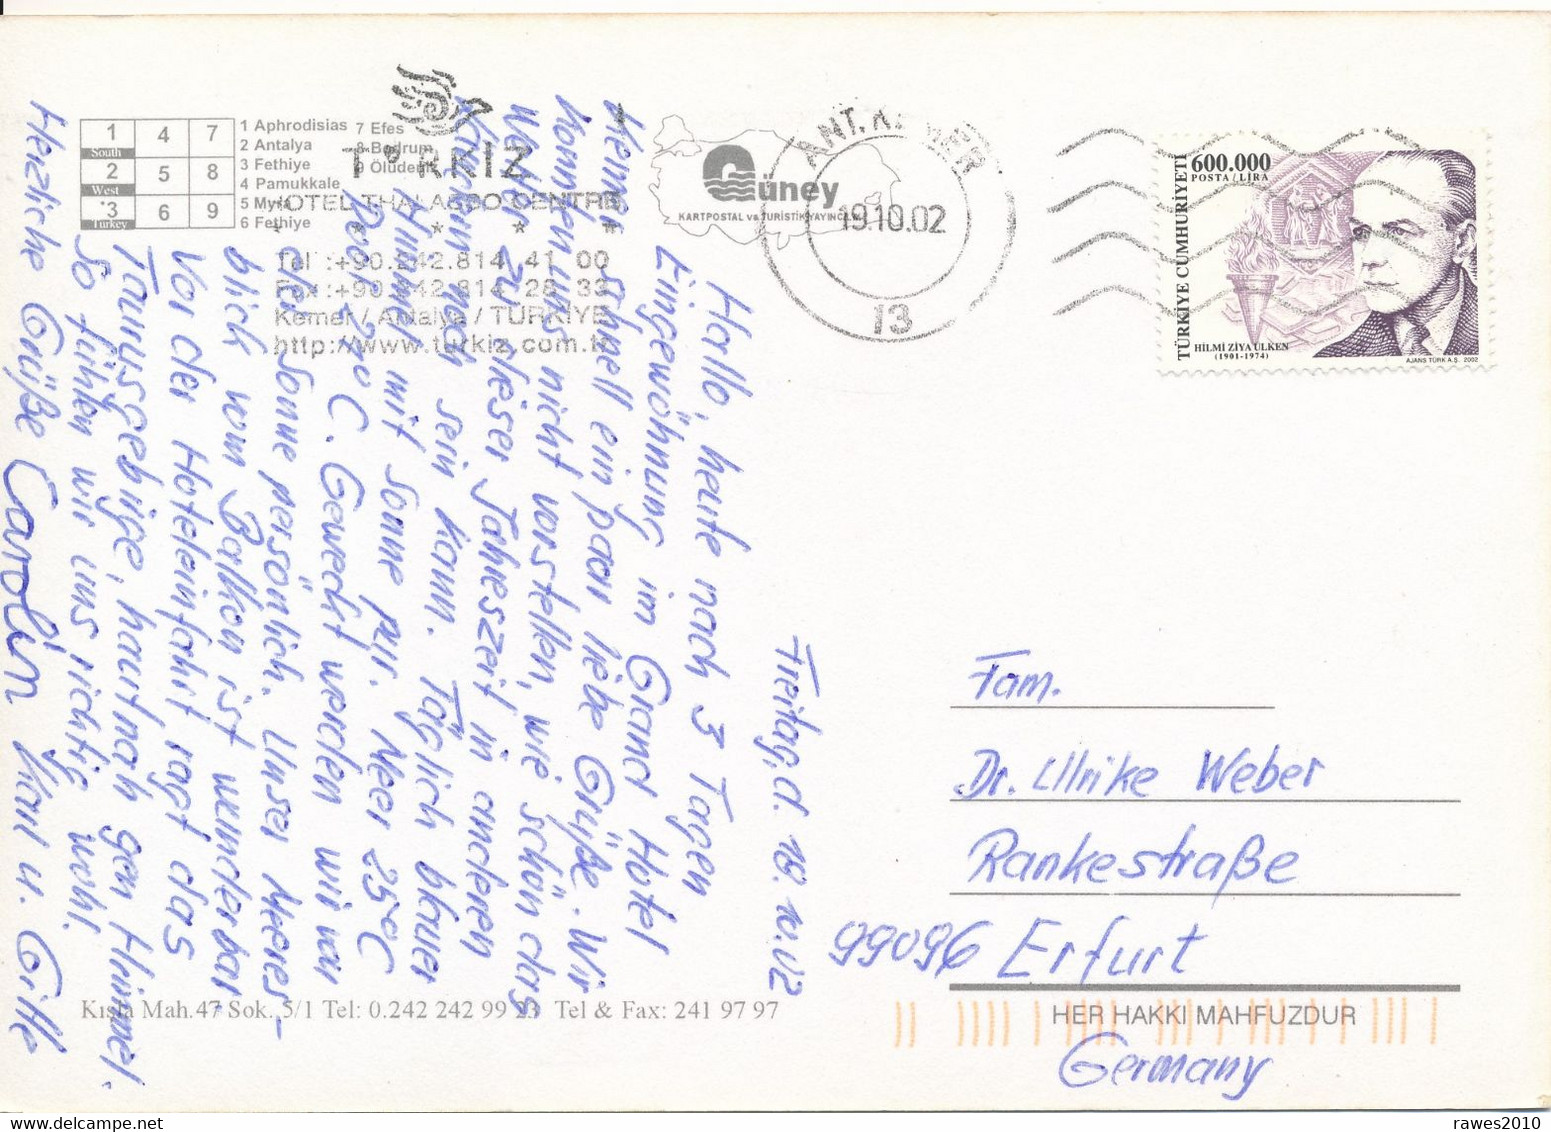 1 4 7
South
2 5 8
West
3 6 9
Turkey
1 Aphrodisias
2 Antalya
3 Fethiye
4 Pamukkale
5 Myra
6 Fethiye
7 Efes
8 Bodrum
9 Ölüdeniz
TÜRKIZ
HOTEL THALASSO CENTRE
* * * * *
Tel :+90.242.814 41 00
Fax :+90.242.814 28 33
Kemer / Antalya / TÜRKİYE
http://www.turkiz.com.tr
Güney
KARTPOSTAL ve TURİSTİK YAYINCILIK
19.10.02
13
TÜRKİYE CUMHURİYETİ
600.000
POSTA / LİRA
HİLMİ ZİYA ÜLKEN
(1901-1974)
AJANS TÜRK A.Ş. 2002
Freitag, d. 18.10.02
Hallo, heute nach 3 Tagen
Eingewöhnung im Grand Hotel
Kemer schnell ein paar liebe Grüße. Wir
konnten uns nicht vorstellen, wie schön das
Wetter zu dieser Jahreszeit in anderen
sein kann. Täglich blauer
Himmel mit Sonne pur. Meer 25°C
Pool 20°C. Geweckt werden wir von
der Sonne persönlich. Unser Meeres-
blick vom Balkon ist wunderbar.
Vor der Hoteleinfahrt ragt das
Taurusgebirge, hautnah gen Himmel.
So fühlen wir uns richtig wohl.
Herzliche Grüße Carolin Karl u. Gitte
Fam.
Dr. Ulrike Weber
Rankestraße
99096 Erfurt
Germany
HER HAKKI MAHFUZDUR
Kışla Mah.47 Sok. 5/1 Tel: 0.242 242 99 23 Tel & Fax: 241 97 97
rawes2010